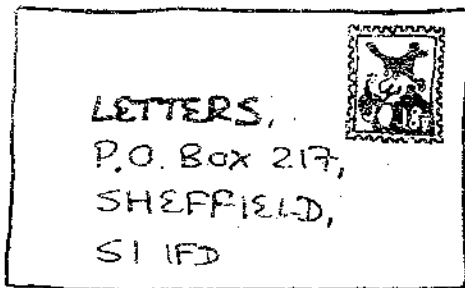 LETTERS,
P.O. BOX 217,
SHEFFIELD,
S1 1FD
18p